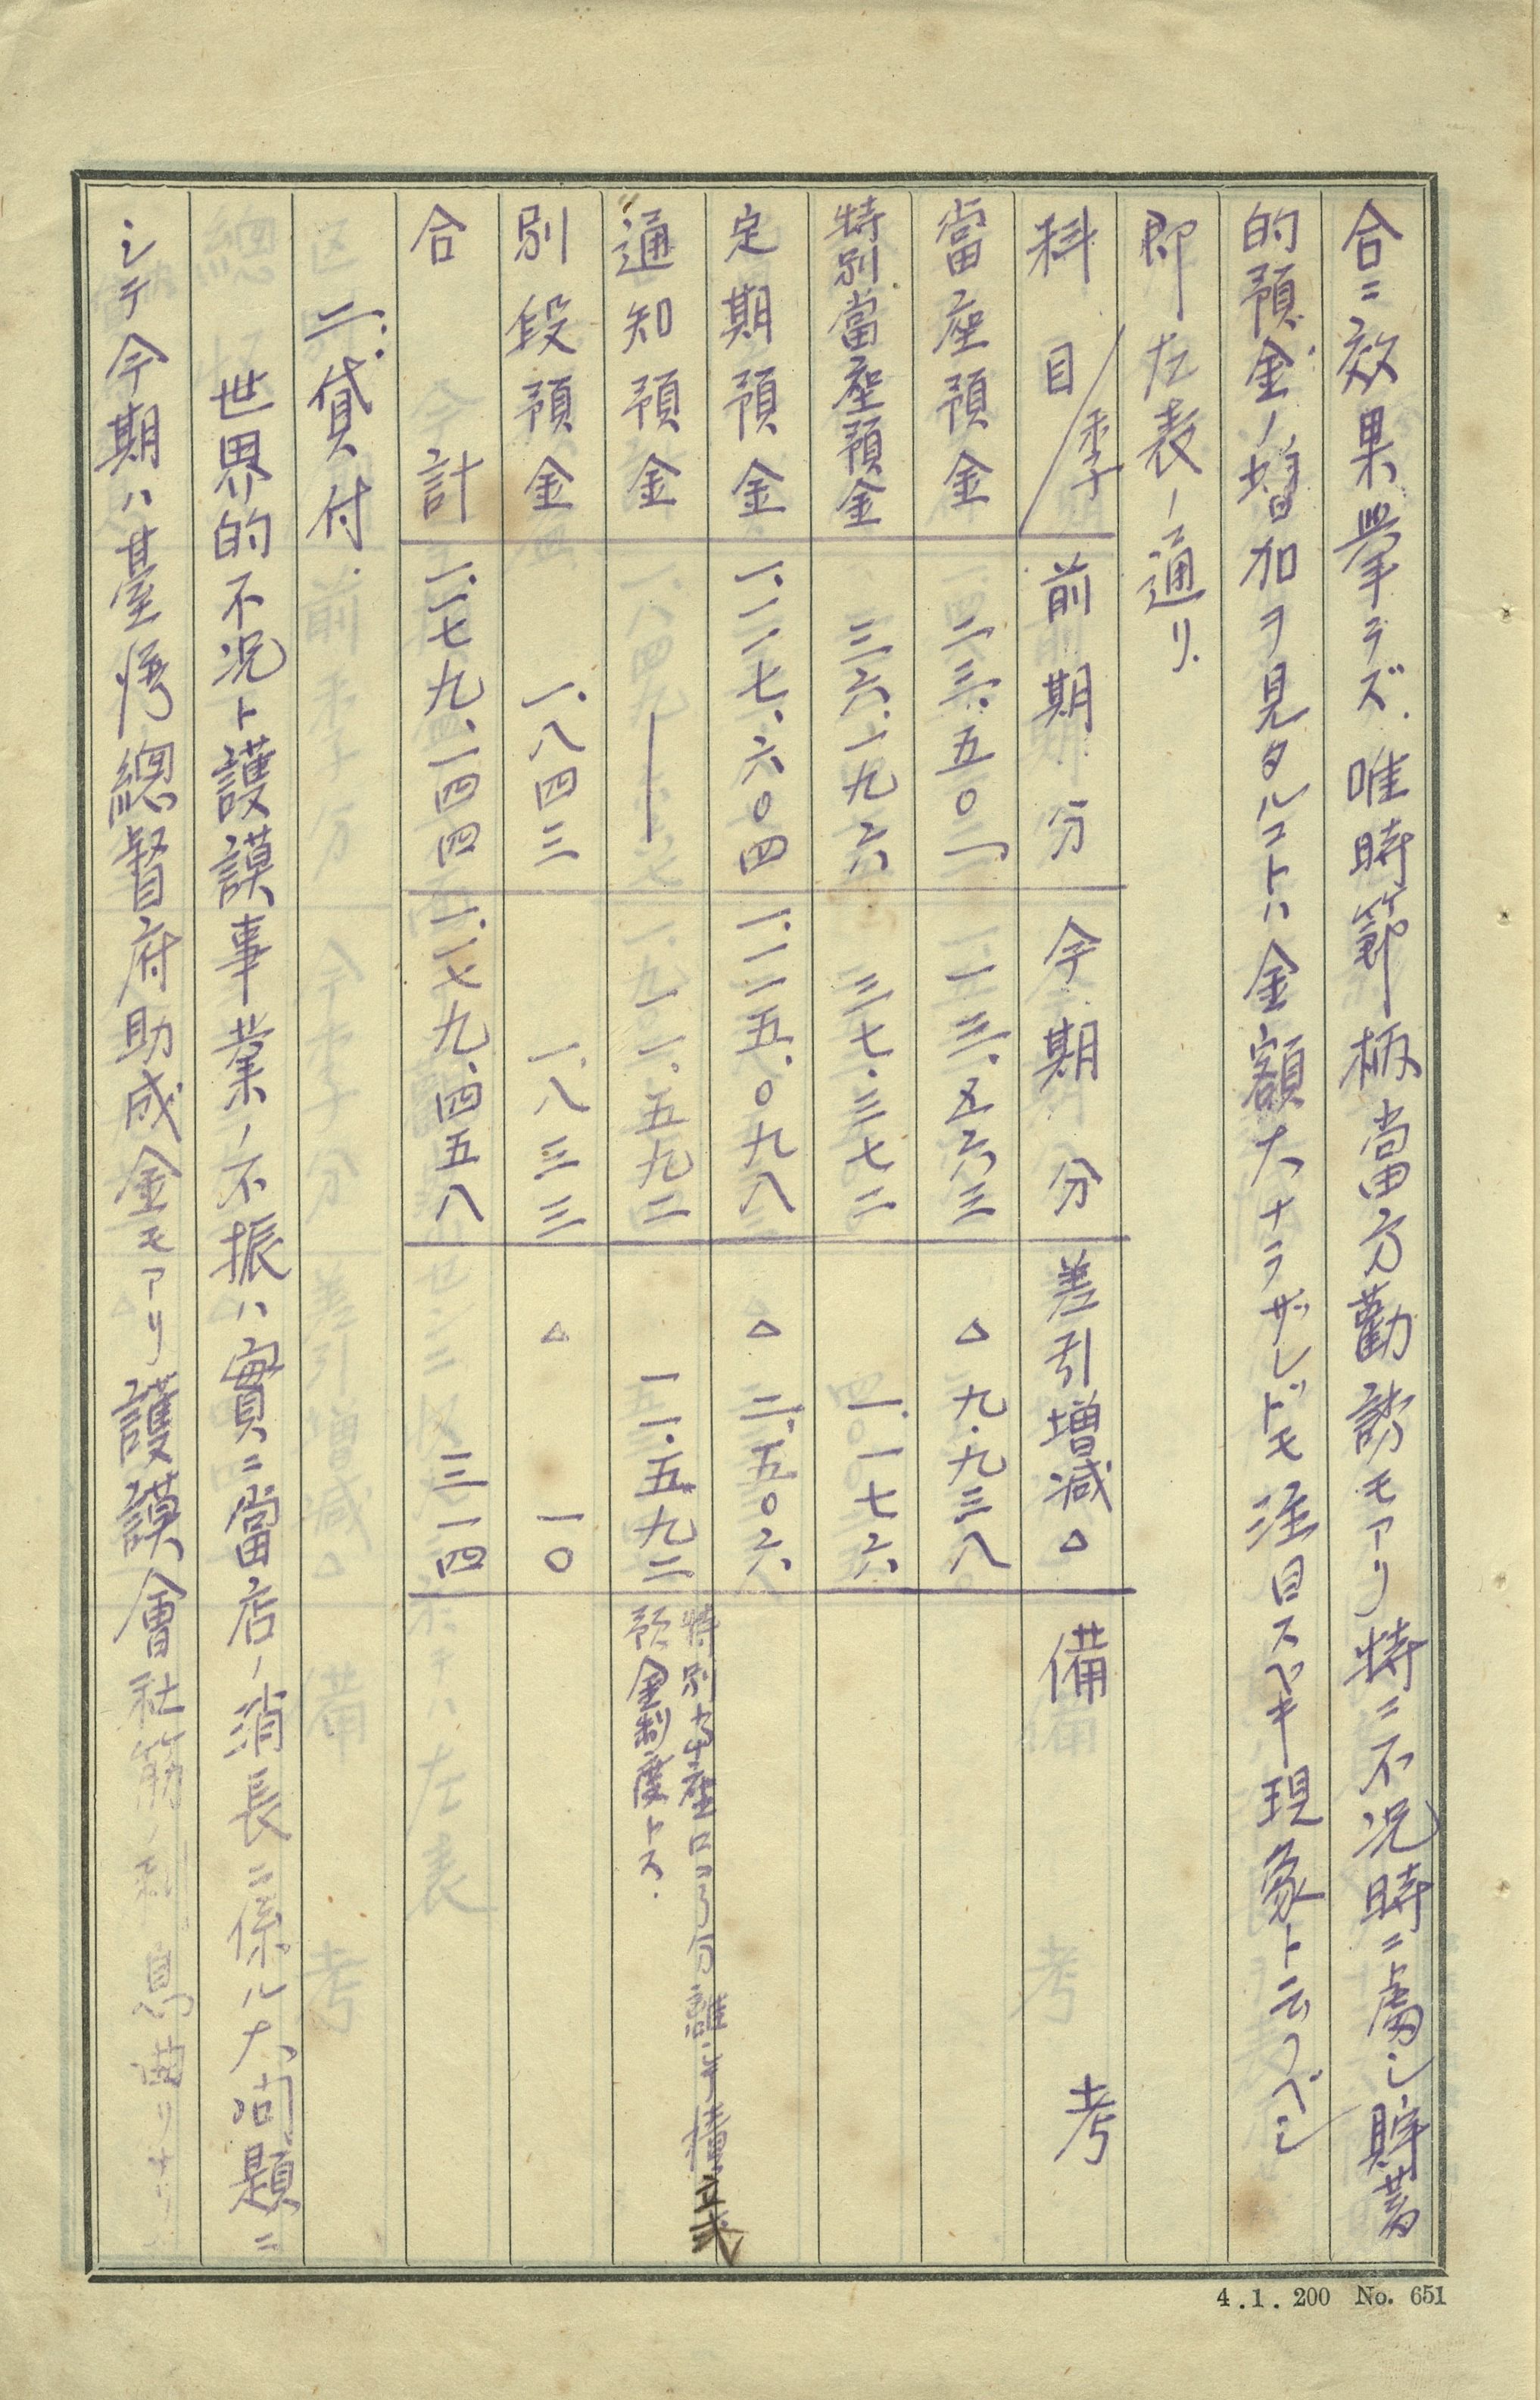 合ニ效果擧ラズ.唯時節柄當方勸誘モアリ特ニ不況時ニ處シ貯蓄
的預金ノ増加ヲ見タルコトハ金額大ナラザレドモ注目スベキ現象ト云フベシ
即左表ノ通リ.
科目/季 前期分 今期分 差引増減△ 備考
當座預金 二三.五〇一 一三.五六三 △九.九三八
特別當座預金 三六.一九六 三七.三七二 一.一七六
定期預金 一.一一七.六〇四 一.一一五.〇九八 △二.五〇六
通知預金 — 一一.五九二 一一.五九二 特別當座口ヨリ分離シ
預金制度トス.
別段預金 一.八四三 一.八三三 △一〇
合計 一.一七九.一四四 一.一七九.四五八 三一四
二.貸付.
世界的不況ト護謨事業ノ不振ハ實ニ當店ノ消長ニ係ル大問題ニ
シテ今期ハ臺灣總督府助成金モアリ護謨會社筋ノ利息由リナリ
4.1.200 No. 651